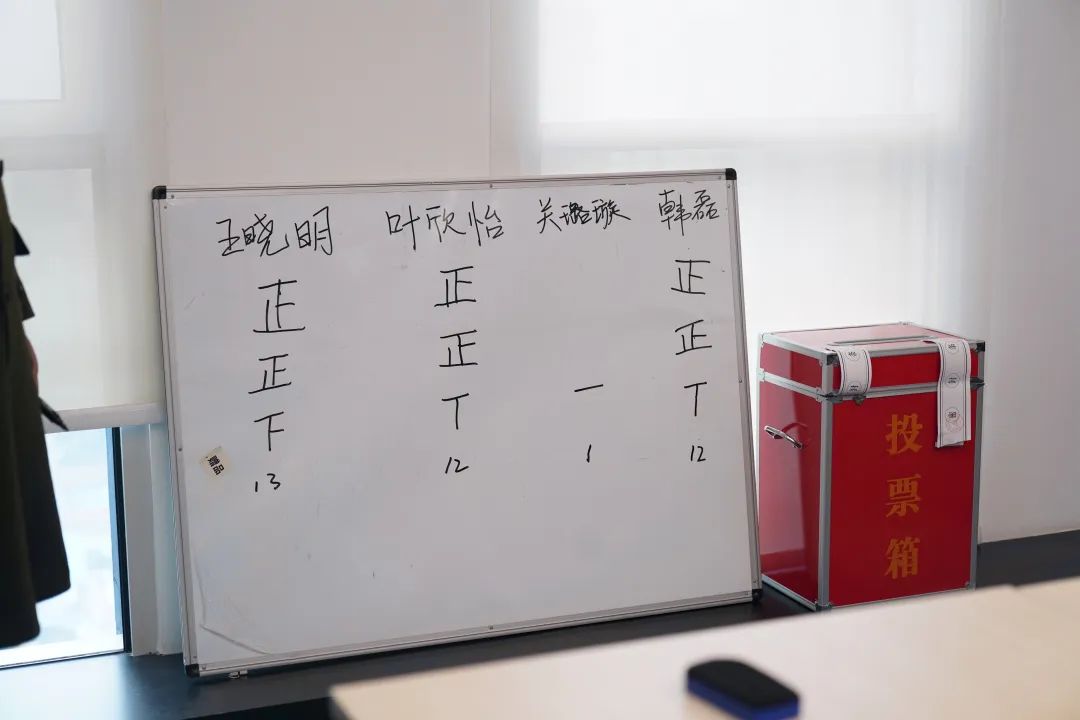 王晓明 叶欣怡 关璐璇 韩磊
正 正 正
正 正 正
下 丅 一 丅
13 12 1 12
赠品
投票箱